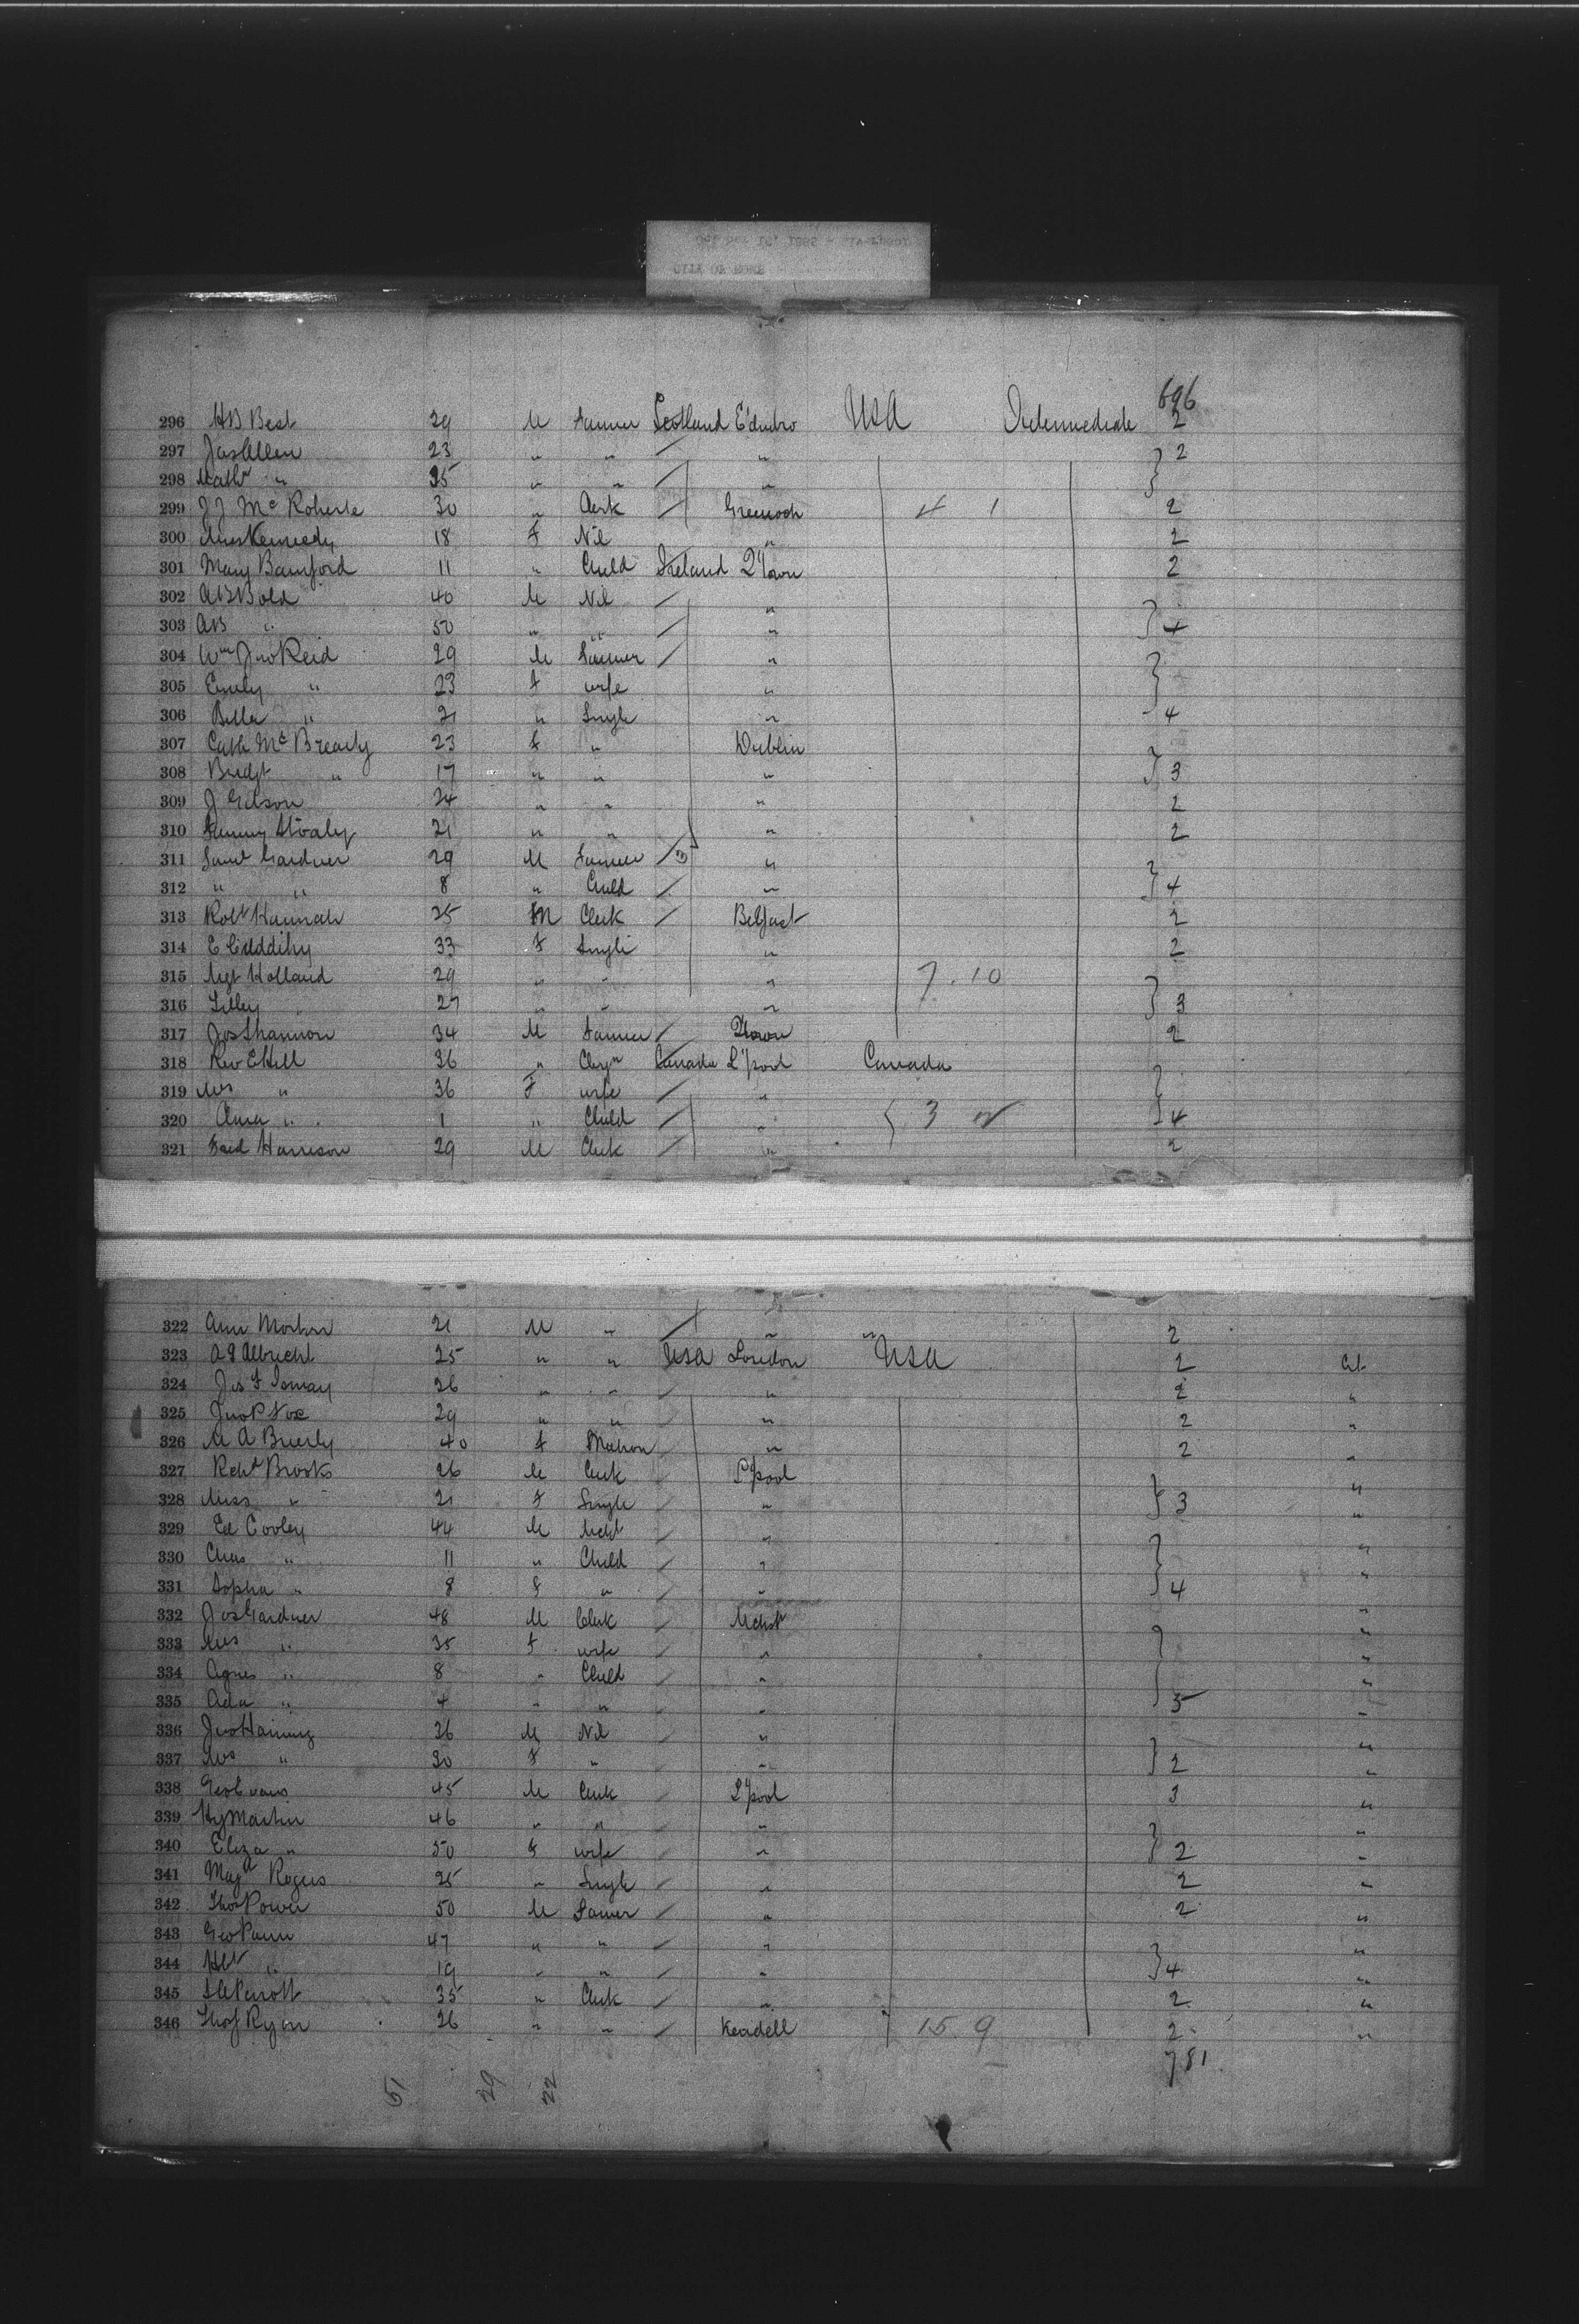 696
296 HB Best 29 M Farmer Scotland E'dinbro USA Intermediate 2
297 Jas Allen 23 " " " 2
298 " 25 " " "
299 J J Mc Roberts 30 " Clerk Greenock 4 1 2
300 Miss Kennedy 18 F Nil " 2
301 Mary Bamford 11 " Child Ireland Q'Town 2
302 AB Bold 40 M Nil "
303 AB " 50 " " " 4
304 Wm Jno Reid 29 M Farmer "
305 Emily " 23 F wife "
306 Bella " 21 " Single " 4
307 Cath Mc Bready 23 F " Dublin
308 Bridgt " 17 " " " 3
309 J Gilson 24 " " " 2
310 Fanny 21 " " " 2
311 Saml Gardner 29 M Farmer 3 "
312 " " 8 " Child " 4
313 Robt Hannah 25 M Clerk Belfast 2
314 E Cuddihy 33 F Single " 2
315 Mgt Holland 29 " " " 7. 10
316 Lilley " 27 " " " 3
317 Jos Shannon 34 M Farmer Q'town 2
318 Rev E Hill 36 " Clergn Canada L'pool Canada
319 Mrs " 36 F wife "
320 " 1 " Child " 3 4
321 Fred Harrison 29 M Clerk " 2
322 Ann Morton 21 M " " " 2
323 A G Albrecht 25 " " USA London USA 2
324 Jos F 26 " " " 2 "
325 Jno P Fox 29 " " " 2 "
326 M A Brierly 40 F Matron " 2 "
327 Robt Brooks 26 M Clerk L'pool "
328 Miss " 21 F Single " 3 "
329 Ed Cooley 44 M Mcht " "
330 Chas " 11 " Child " "
331 Sophia " 8 F " " 4 "
332 Jos Gardner 48 M Clerk Mchstr "
333 Mrs " 35 F wife " "
334 Agnes " 8 " Child " "
335 Ada " 4 " " " 5 "
336 Jno 26 M Nil " "
337 Mrs " 30 F " " 2 "
338 Geo Evans 45 M Clerk L'pool 3 "
339 Hy Martin 46 " " " "
340 Eliza " 50 F wife " 2 "
341 Rogers 25 " Single " 2 "
342 Thos Power 50 M Farmer " 2 "
343 Geo 47 " " " "
344 " 19 " " " 4 "
345 35 " Clerk " 2 "
346 Thos Ryan 26 " " 15 9 2 "
781
51 29 22